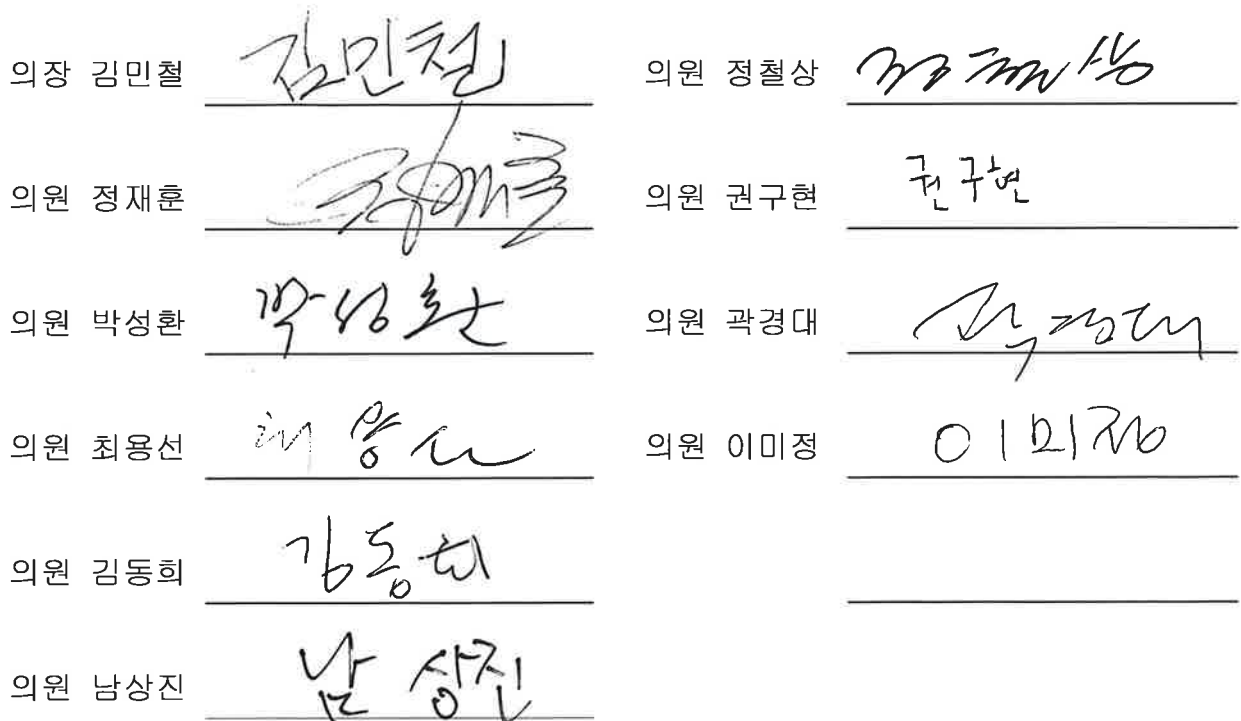 의장 김민철 김민철
의원 정재훈
의원 박성환 박성환
의원 최용선 최용선
의원 김동희 김동희
의원 남상진 남상진
의원 정철상 정철상
의원 권구현 권구현
의원 곽경대 곽경대
의원 이미정 이미정